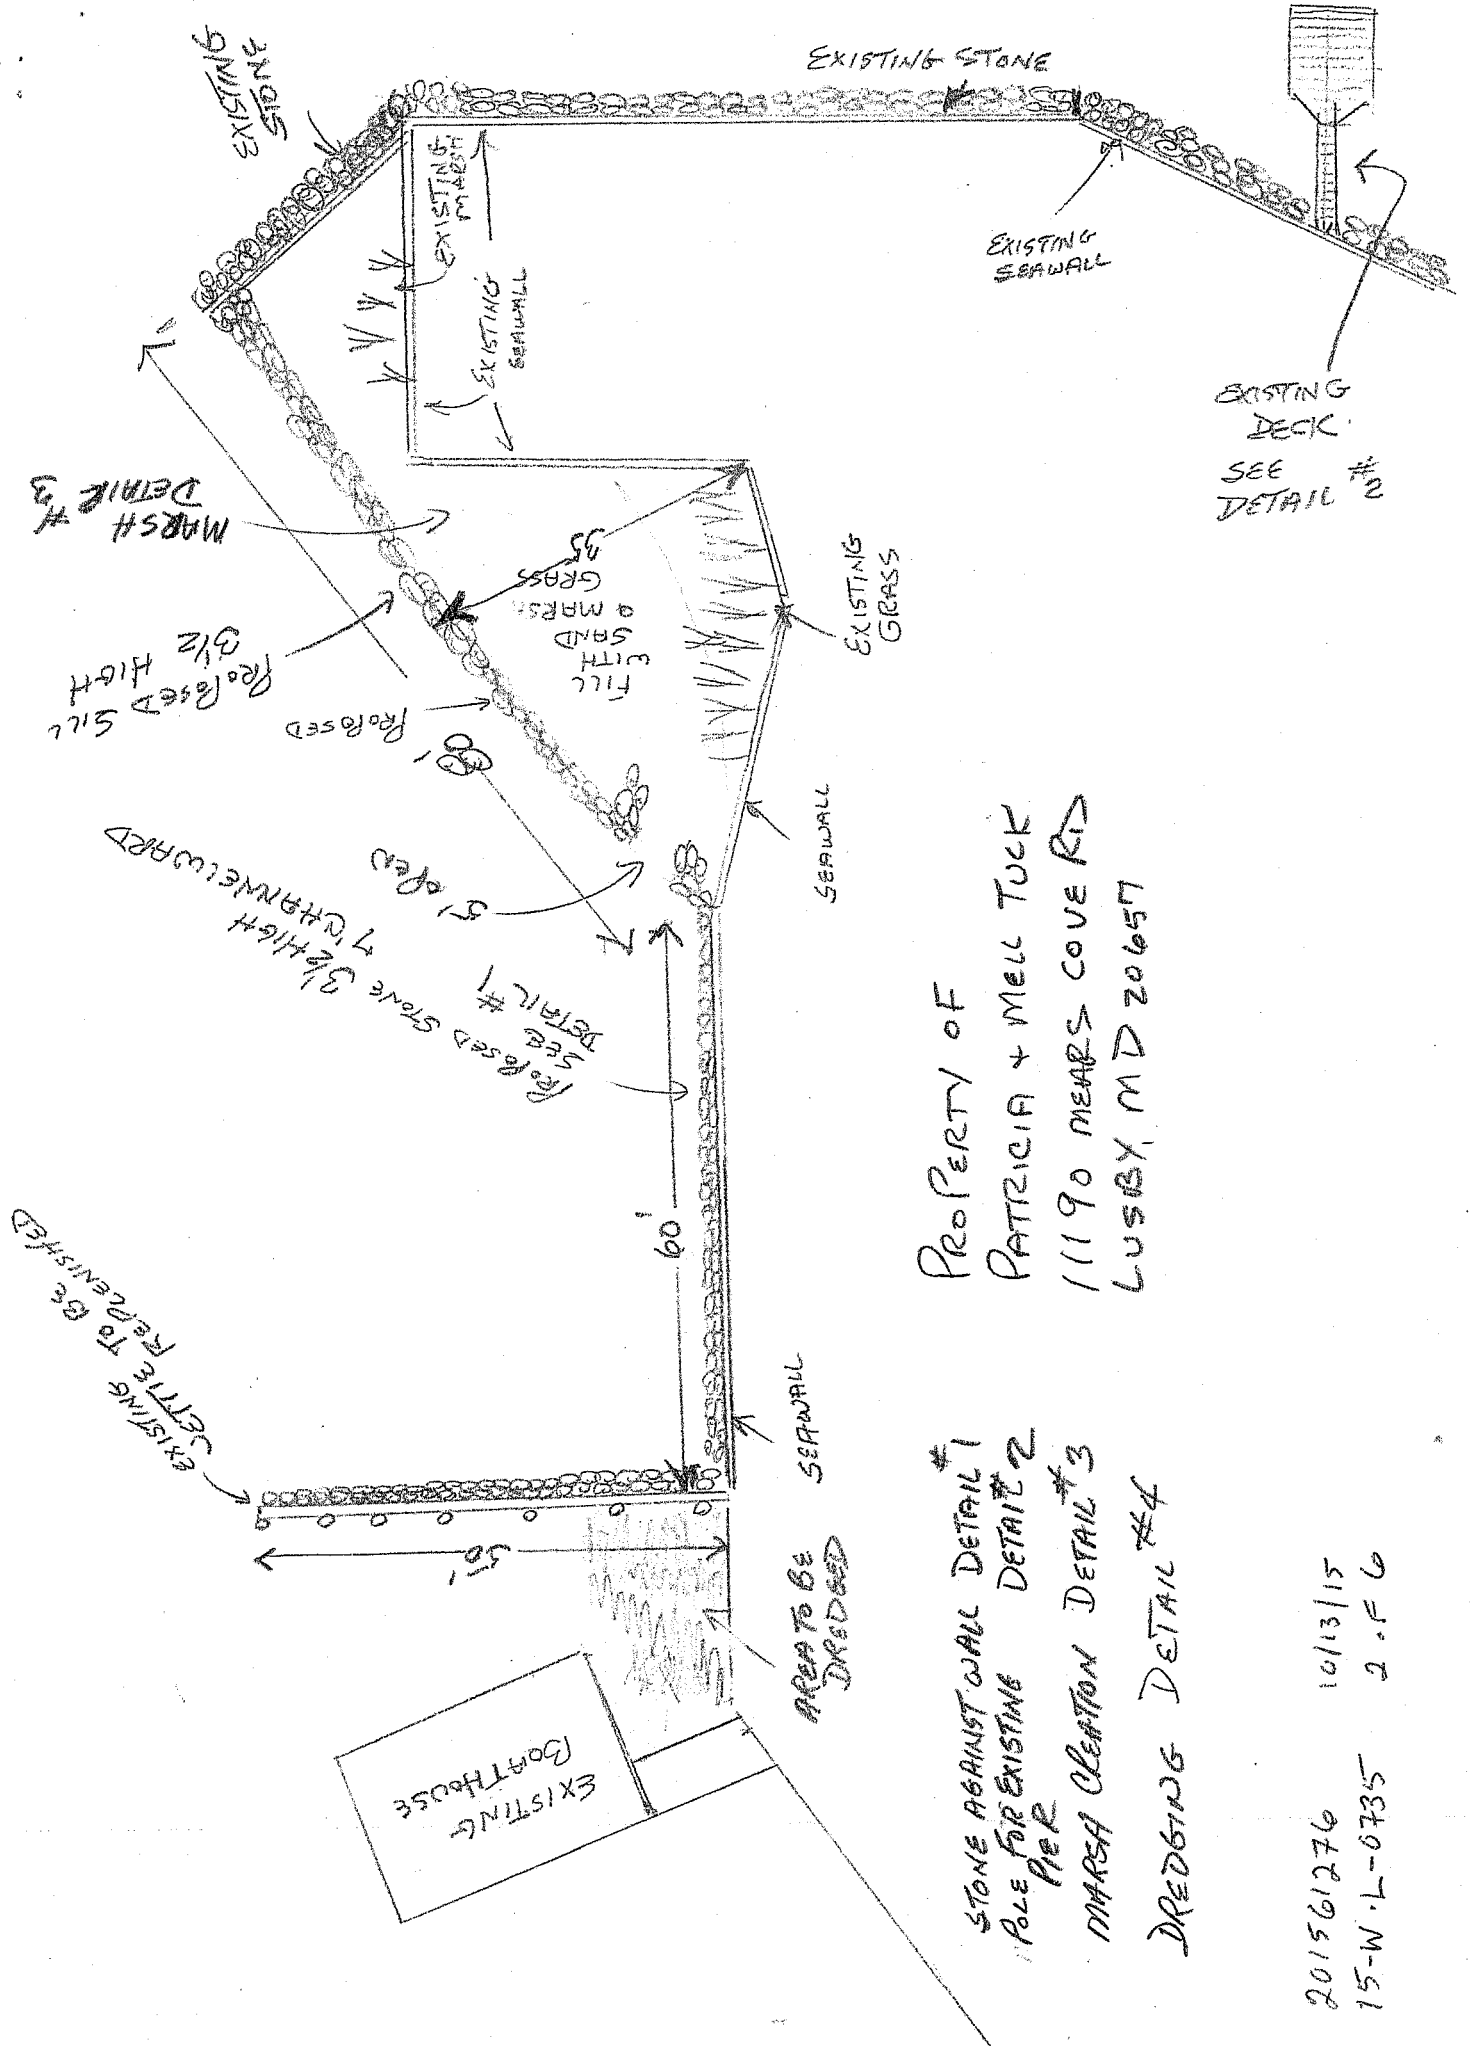 EXISTING
STONE
EXISTING STONE
EXISTING
MARSH
EXISTING
SEAWALL
EXISTING
SEAWALL
EXISTING
DECK
SEE
DETAIL #2
MARSH
DETAIL #3
PROPOSED SILL
3 1/2 HIGH
PROPOSED
35
FILL
WITH
SAND
& MARSH
GRASS
EXISTING
GRASS
88'
5' OPEN
PROPOSED STONE 3 1/2 HIGH
7' CHANNELWARD
SEE
DETAIL #1
SEAWALL
60'
EXISTING
JETTIE TO BE
REPLENISHED
50'
SEAWALL
AREA TO BE
DREDGED
EXISTING
BOATHOUSE
PROPERTY OF
PATRICIA + MELL TUCK
11190 MEARS COVE RD
LUSBY, MD 20657
STONE AGAINST WALL DETAIL #1
POLE FOR EXISTING DETAIL #2
PIER
MARSH CREATION DETAIL #3
DREDGING DETAIL #4
201561276 10/13/15
15-WL-0735 2 OF 6